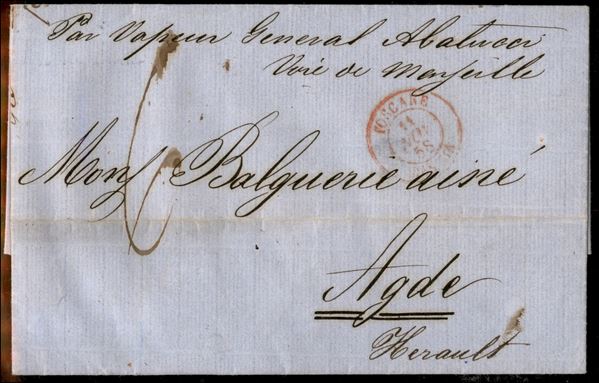 Par Vapeur General Abatucci
Voie de Marseille
TOSCANE
11
58
Mons Balguerie ainé
Agde
Herault